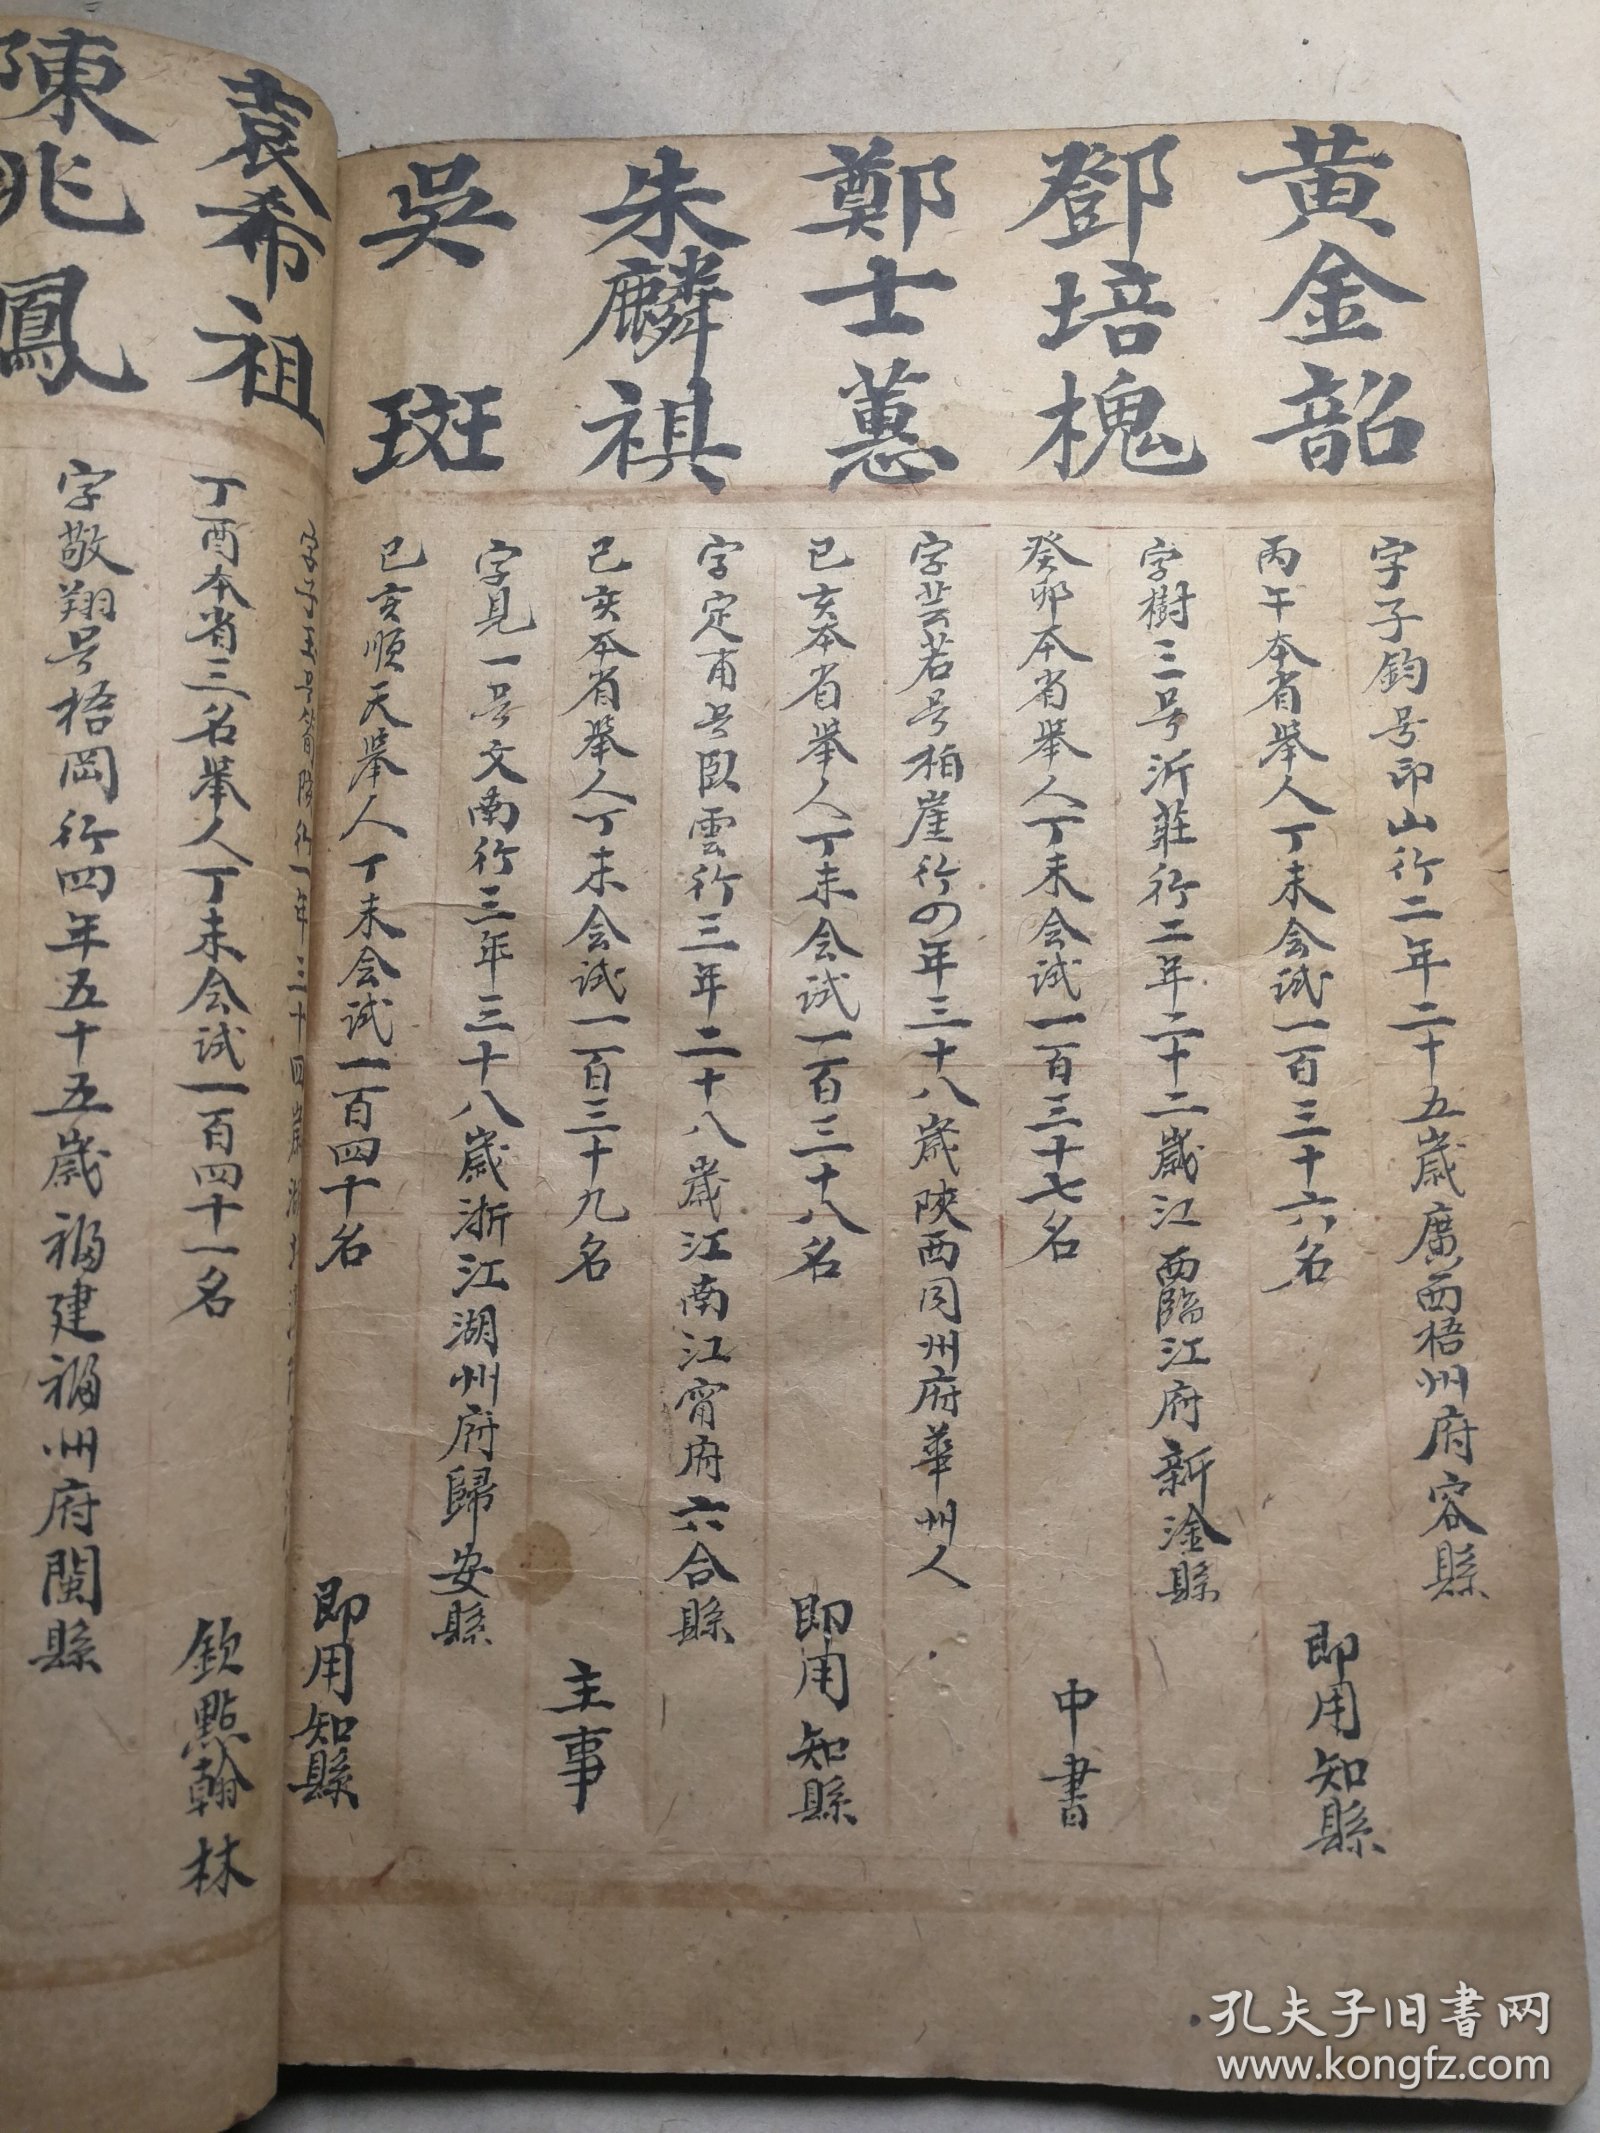 黄金韶
字子鈞号印山行二年二十五歳廣西梧州府容縣
丙午本省舉人丁未会試一百三十六名
即用知縣
鄧培槐
字樹三号沂莊行二年二十二歲江西臨江府新淦縣
癸卯本省舉人丁未会試一百三十七名
中書
鄭士蕙
字芸若号柏崖行四年三十八歲陝西同州府華州人
已亥本省舉人丁未会試一百三十八名
即用知縣
朱麟祺
字定甫号臥雲行三年二十八歲江南江甯府六合縣
已亥本省舉人丁未会試一百三十九名
主事
吳斑
字見一号文南行三年三十八歲浙江湖州府歸安縣
已亥順天舉人丁未会試一百四十名
即用知縣
袁希祖
字子玉号
行一年三十四歲湖
丁酉本省三名舉人丁未会試一百四十一名
欽點翰林
陳兆鳳
字敬翔号梧岡行四年五十五歲福建福州府閩縣
孔夫子旧书网
www.kongfz.com